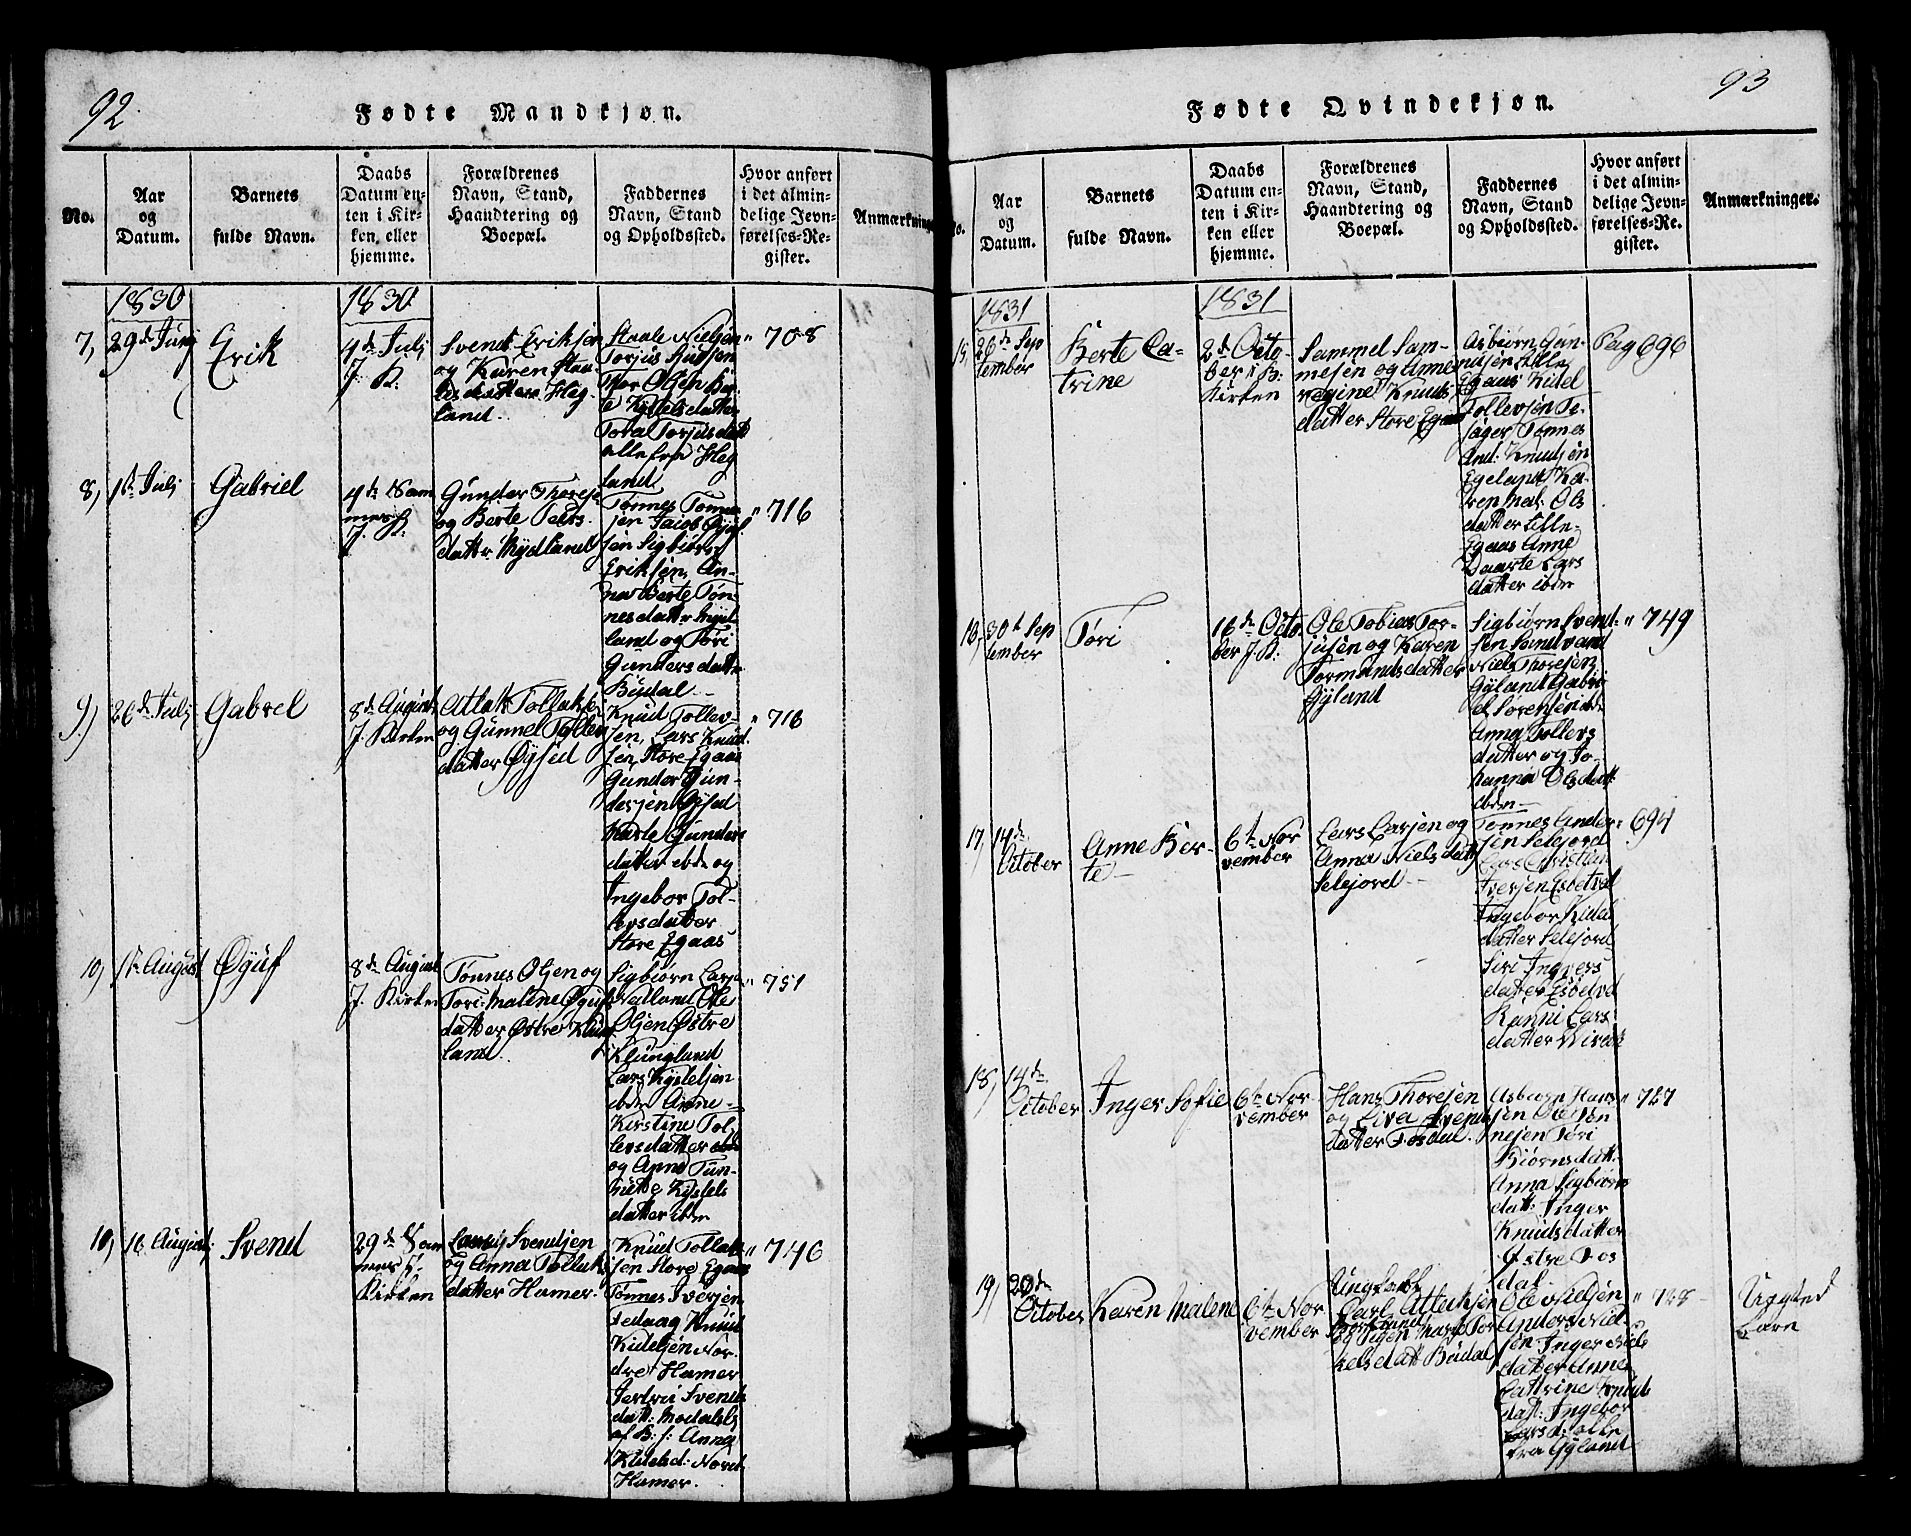 92.
Fødte Mandkjøn.
No.
Aar
og
Datum.
Barnets
fulde Navn.
Daabs
Datum en-
ten i Kir-
ken, eller
hjemme.
Forældrenes
Navn, Stand,
Haandtering og
Boepæl.
Faddernes
Navn, Stand
og Opholdssted.
Hvor anført
i det almin-
delige Jevn-
førelses-Re-
gister.
Anmærkninger
1830
1830
7,
29de Junj
Erik
4de Julj
J. K:
Svend Eriksen
og Karen Staa-
lesdatter Heg-
land.
Staale Nielsen
Torjus
Thor Olsen Ber-
te Kjitelsdatter
Tora Torjusdatt
alle fra Heg
land
" 708
8,
1de Julj
Gabriel
4de Bam
mers K
J. K:
Gunder Thorsje
og Berte Peers
datter Mydland
Tønnes Tønne
sen Jacob
sen Sigbiørn
Eriksen, An-
na Berte Tøn-
nesdatter Myd
land og Tori
Gundersdatter
Budal
" 716
9,)
26de Julj
Gabrel
8de August
J. Kirken
Atlak Tollaks
og Gunnel Tollev
datter Øysud
Knud Tollev-
sen, Lars Knud
sen, Store Egaas
Gunder Gun-
dersen Øysud
Marte Gunders
datter ebd og
Ingebor Tol-
levsdatter
Store Egaas
" 716
10,
1de August
Øyuf
8de August
J. Kirken
Tønnes Olsen og
Tori Malene Øyufs
datter Østre Klung
land.
Sigbiørn Larse
Nalland Ole
Olsen Østre
Klungland
Lars Kjitelsen
ebdm Anne-
Kirstine Tol
levsdatter ebd
og Anne Gun-
hilde Kjitels
datter ibm
" 751
10,
16 August
Svend
29de Bam
mers K.
Kirken
Svendsen
og Anna Tollaks
datter Hamer.
Knud Tollak
sen Store Egaas
Tønnes Iversen
Fedaag Knud
Kidelsen Nor-
dre Hamer
Sertrú Svends
datt: Modalsli
af B: s: Anna
Kidelsd: Nord
Hamer.
" 746
93
Fødte Qvindekjøn.
No.
Aar
og
Datum.
Barnets
fulde Navn.
Daabs
Datum en-
ten i Kir-
ken eller
hjemme.
Forældrenes
Navn, Stand,
Haandtering og
Boepæl.
Faddernes
Navn, Stand
og Opholdssted.
Hvor anført
i det almin-
delige Jevn-
førelses-Re-
gister.
Anmærkninger.
1831
1831
15,
26de Sep
tember
Berte Ca-
trine
2de Octo-
ber i B:
Kirken
Sammel Sam-
melsen og Anne
regine Knuds
datter Store Egaas
Asbiørn Gun-
nusen Lille
Egaas Kidel
Tollevsen Te-
sager Tønnes
And: Knudsen
Egelapt Ka-
ren Mal: Ols
datter Lille-
Egaas Anne
Daarte Lars
datter ibm
Pag 696
16,
30t Sep
tember
Tori
16de Octo
ber J. K:
Ole Tobias Tor-
jusen og Karen
Tormundsdatter
Gyland
Sigbiørn Svend-
sen Sandvand
Niels Thoresen
Gyland Gabri
el Sørensen ibdm
Anna Tollevs
datter og Jo-
hanna Olsdatt
ibdm
" 749
17,
14de
October
Anne Ber-
te
6te Nov
vember
Lars Larsen og
Anna Nielsdatt
Selejord
Tønnes Ander-
sen Selejord
Lars Christian
Iversen Esbetvel
Ingebor Kidels
datter Selejord
Siri Ingvers
datter Esbetvd
Kanni Lars
datter Virak
" 694
18,
14de
October
Inger Sofie
6te Nov-
vember
Hans Thoresen
og Eiva Svends
datter Fosdal.
Asbiørn Hans
sen Ole Tøn
nesen Tori
Biørnsdatt.
Anna Sigbiørns
datt: Inger
Knudsdatter
Østre Fos
dal
" 727
19,
20de
October
Karen Malene
6te Nov
vember
Ungkarl
Carl Atlaksen
og Pigen Marte Tor
kelsdatt Budal
Ole Nielsen
Anders Niel
sen Inger Niels
datter Anne
Cathrine Knuds
datt: Ingebor
Larsd: alle
fra Gyland
" 728
Uægted
Barn